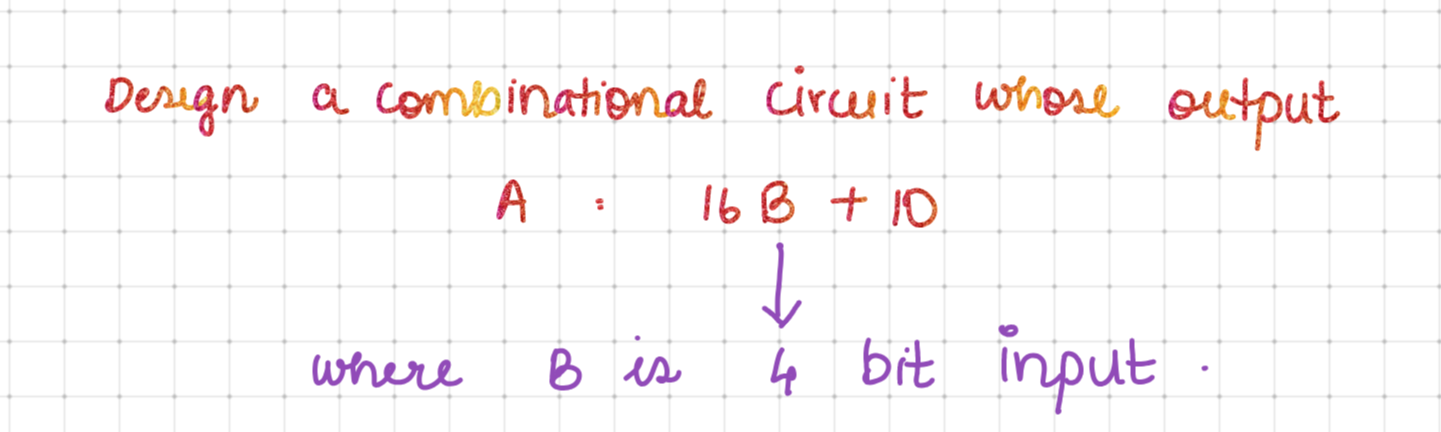 Design a combinational circuit whose output
A : 16 B + 10
where B is 4 bit input .